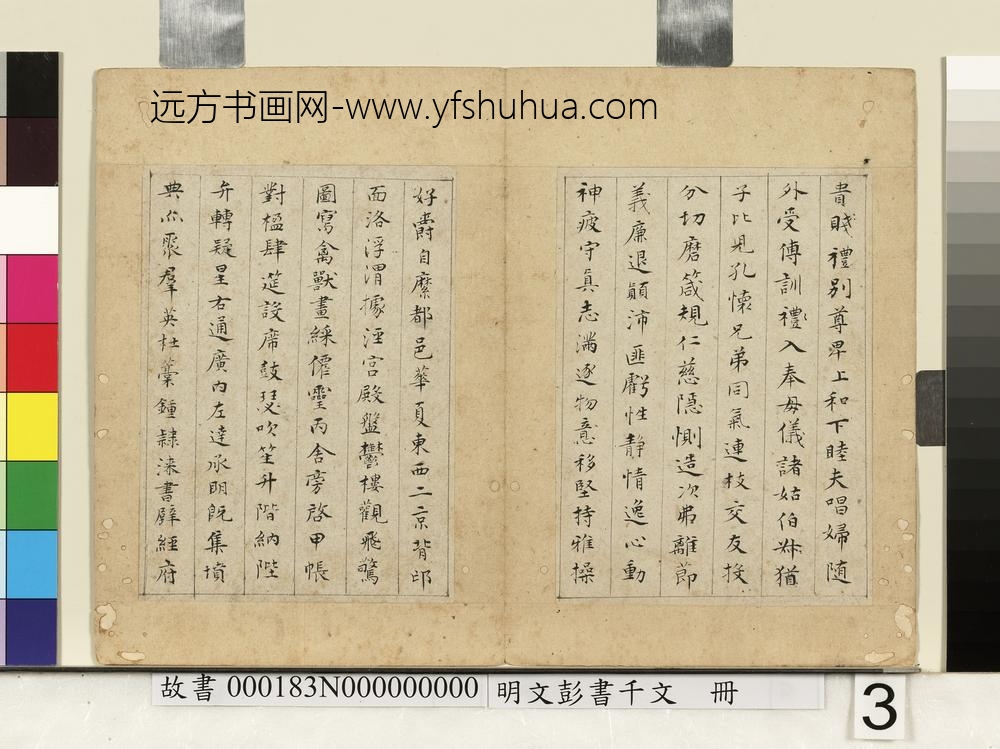 远方书画网-www.yfshuhua.com
貴賤禮別尊卑上和下睦夫唱婦隨
外受傅訓禮入奉母儀諸姑伯叔猶
子比兒孔懷兄弟同氣連枝交友投
分切磨箴規仁慈隱惻造次弗離節
義廉退顛沛匪虧性靜情逸心動
神疲守真志滿逐物意移堅持雅操
好爵自縻都邑華夏東西二京背邙
面洛浮渭據涇宮殿盤鬱樓觀飛驚
圖寫禽獸畫綵僊靈丙舍旁啓甲帳
對楹肆筵設席鼓瑟吹笙升階納陛
弁轉疑星右通廣內左達承明既集墳
典亦聚羣英杜藁鍾隸漆書壁經府
故書 000183N000000000
明文彭書千文 冊
3